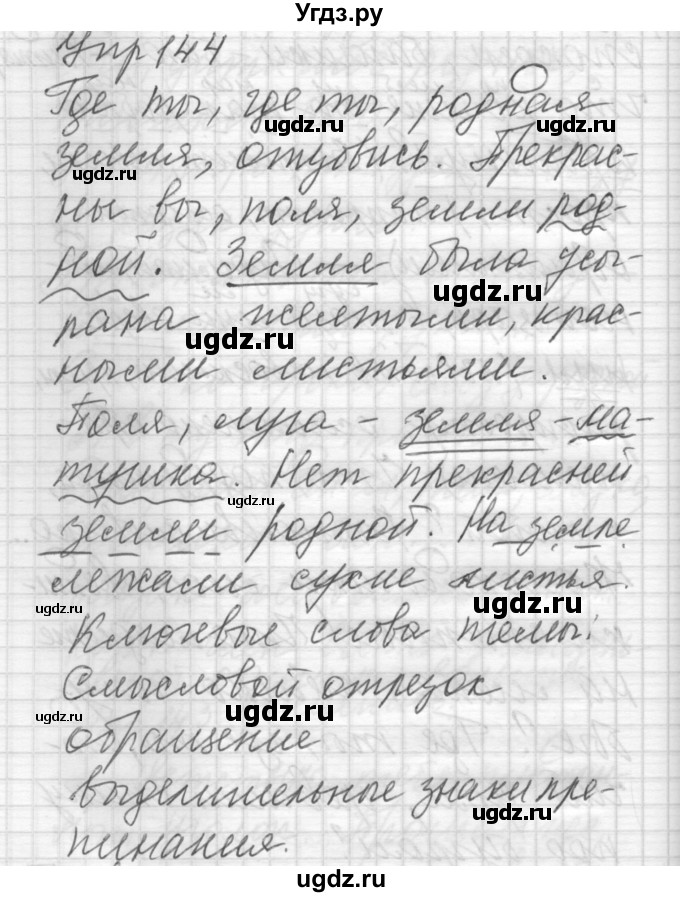 Угдз.ру
Упр 144
Где ты, где ты, родная
земля, отзовись. Прекрас-
ны вы, поля, земли род-
ной. Земля была усы-
пана желтыми, крас-
ными листьями.
Поля, луга – земля-ма-
тушка. Нет прекрасней
земли родной. На земле
лежали сухие листья.
Ключевые слова темы:
Смысловой отрезок
обращение
выделительные знаки пре-
пинания.
ugdz.ru
ugdz.ru
ugdz.ru
ugdz.ru
ugdz.ru
ugdz.ru
ugdz.ru
ugdz.ru
ugdz.ru
ugdz.ru
ugdz.ru
ugdz.ru
ugdz.ru
ugdz.ru